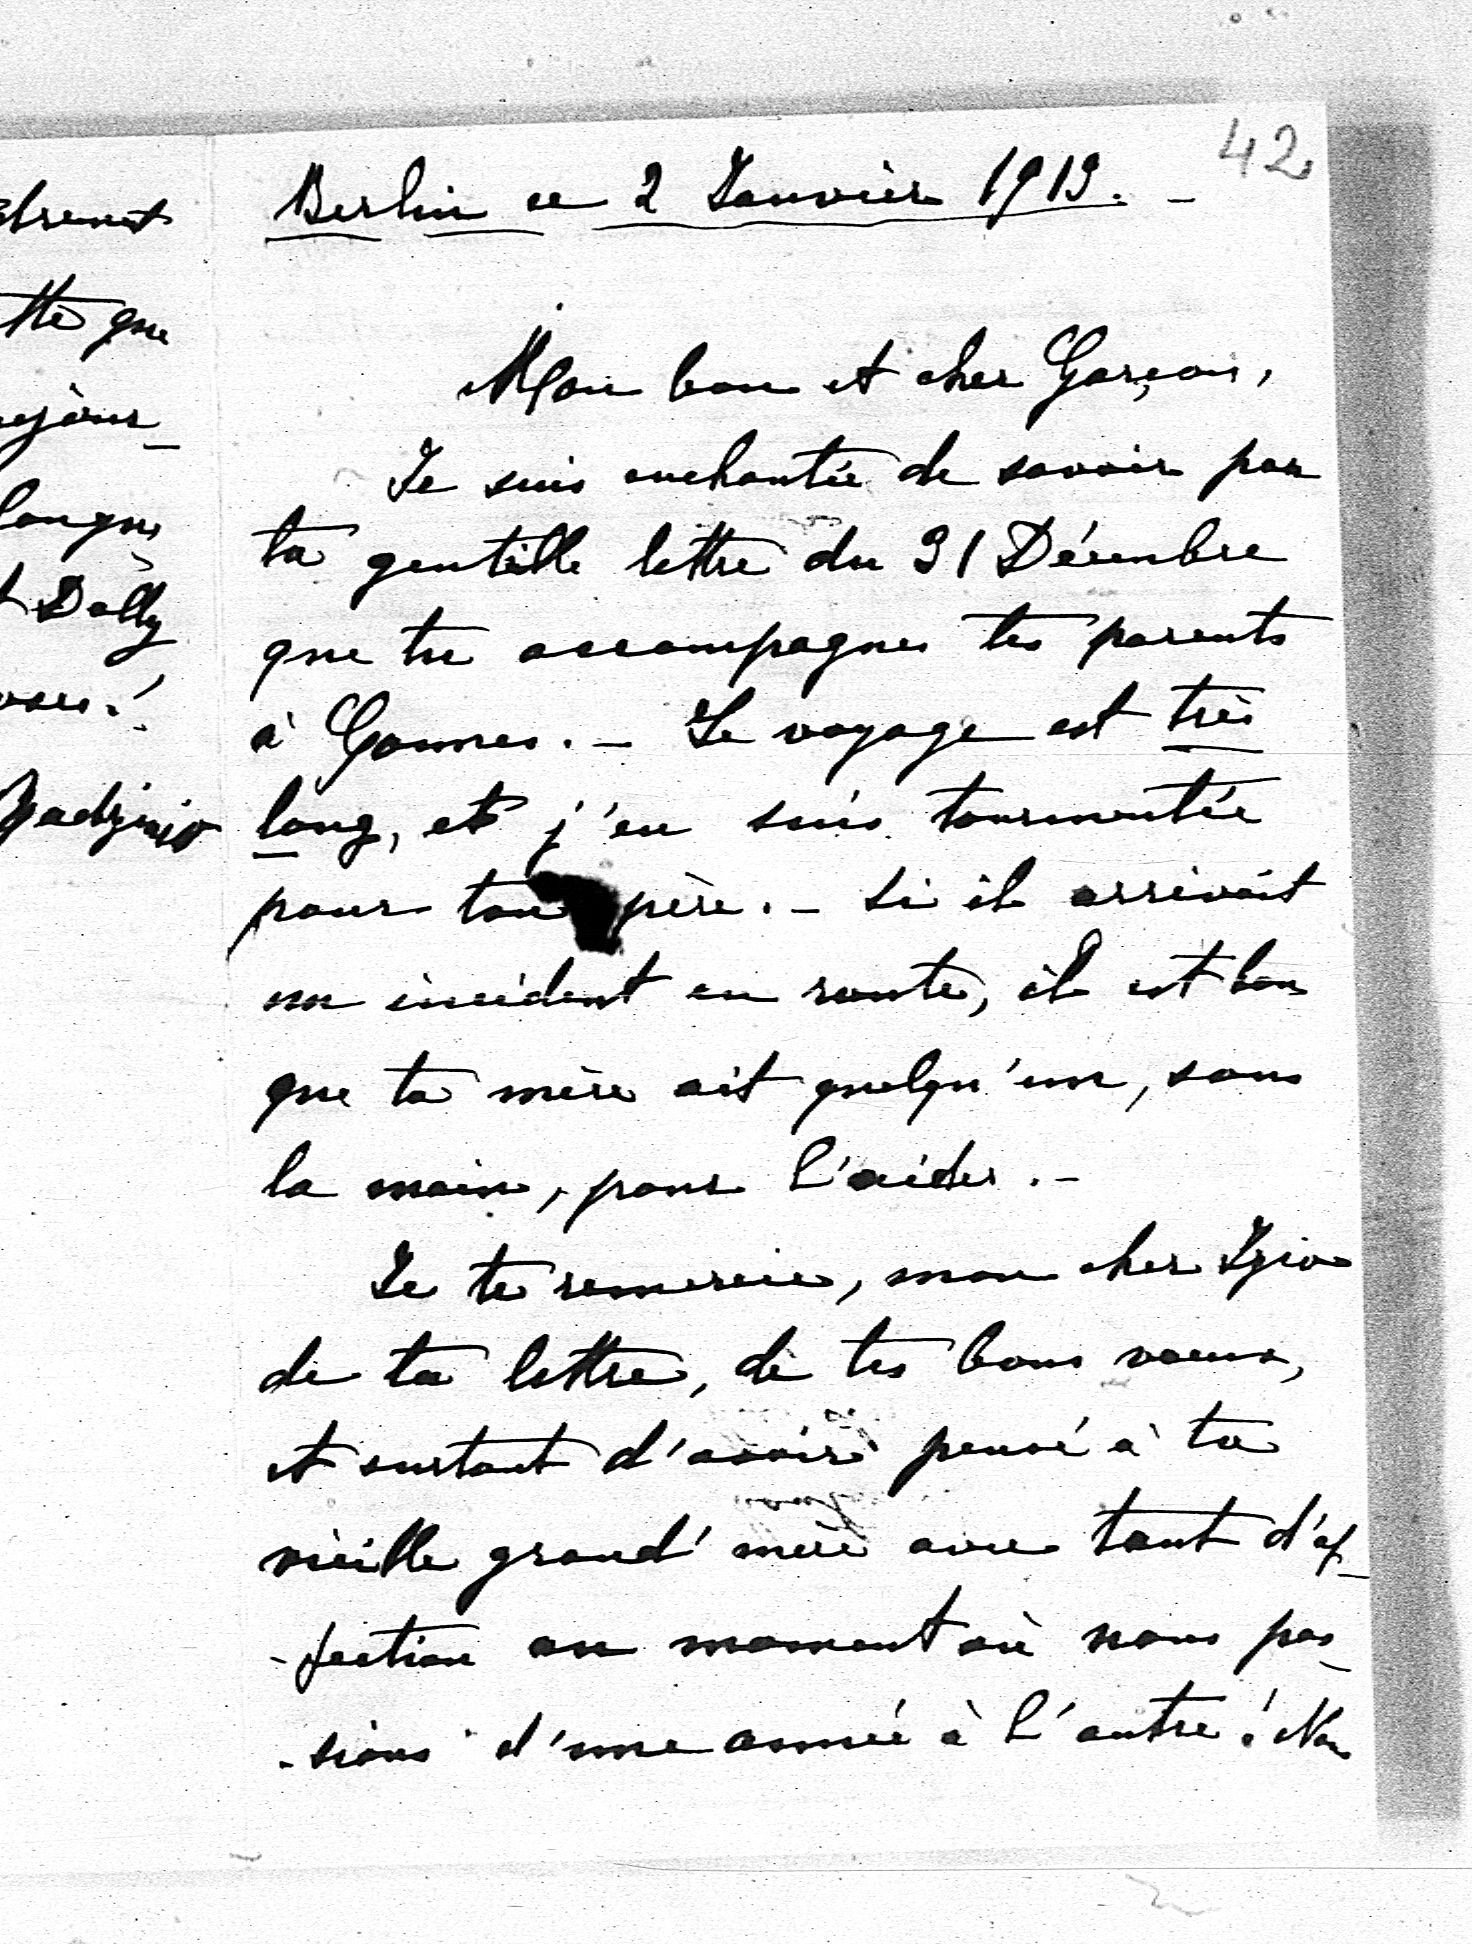 42
Berlin ce 2 Janvier 1913. -
Mon bon et cher Garçon,
Je suis enchantée de savoir par
ta gentille lettre du 31 Décembre
que tu accompagnes tes parents
à Cannes. - Le voyage est très
long, et j'en suis tourmentée
pour ton père. - Si il arrivait
un incident en route, il est bon
que ta mère ait quelqu'un, sous
la main, pour l'aider. -
Je te remercie, mon cher
de ta lettre, de tes bons vœux,
et surtout d'avoir pensé à ta
vieille grand' mère avec tant d'af-
-fection au moment où nous pas-
-sions d'une année à l'autre! Nou
ette que
longue
t Dolly